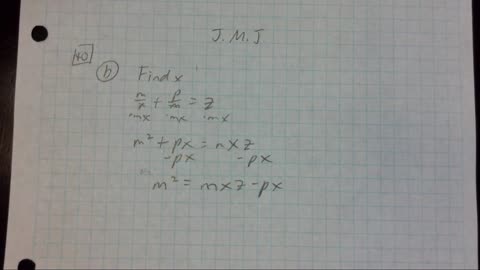 J.M.J
40
b Find x
m/x + p/m = z
·mx ·mx ·mx
m² + px = mxz
-px -px
m² = mxz - px